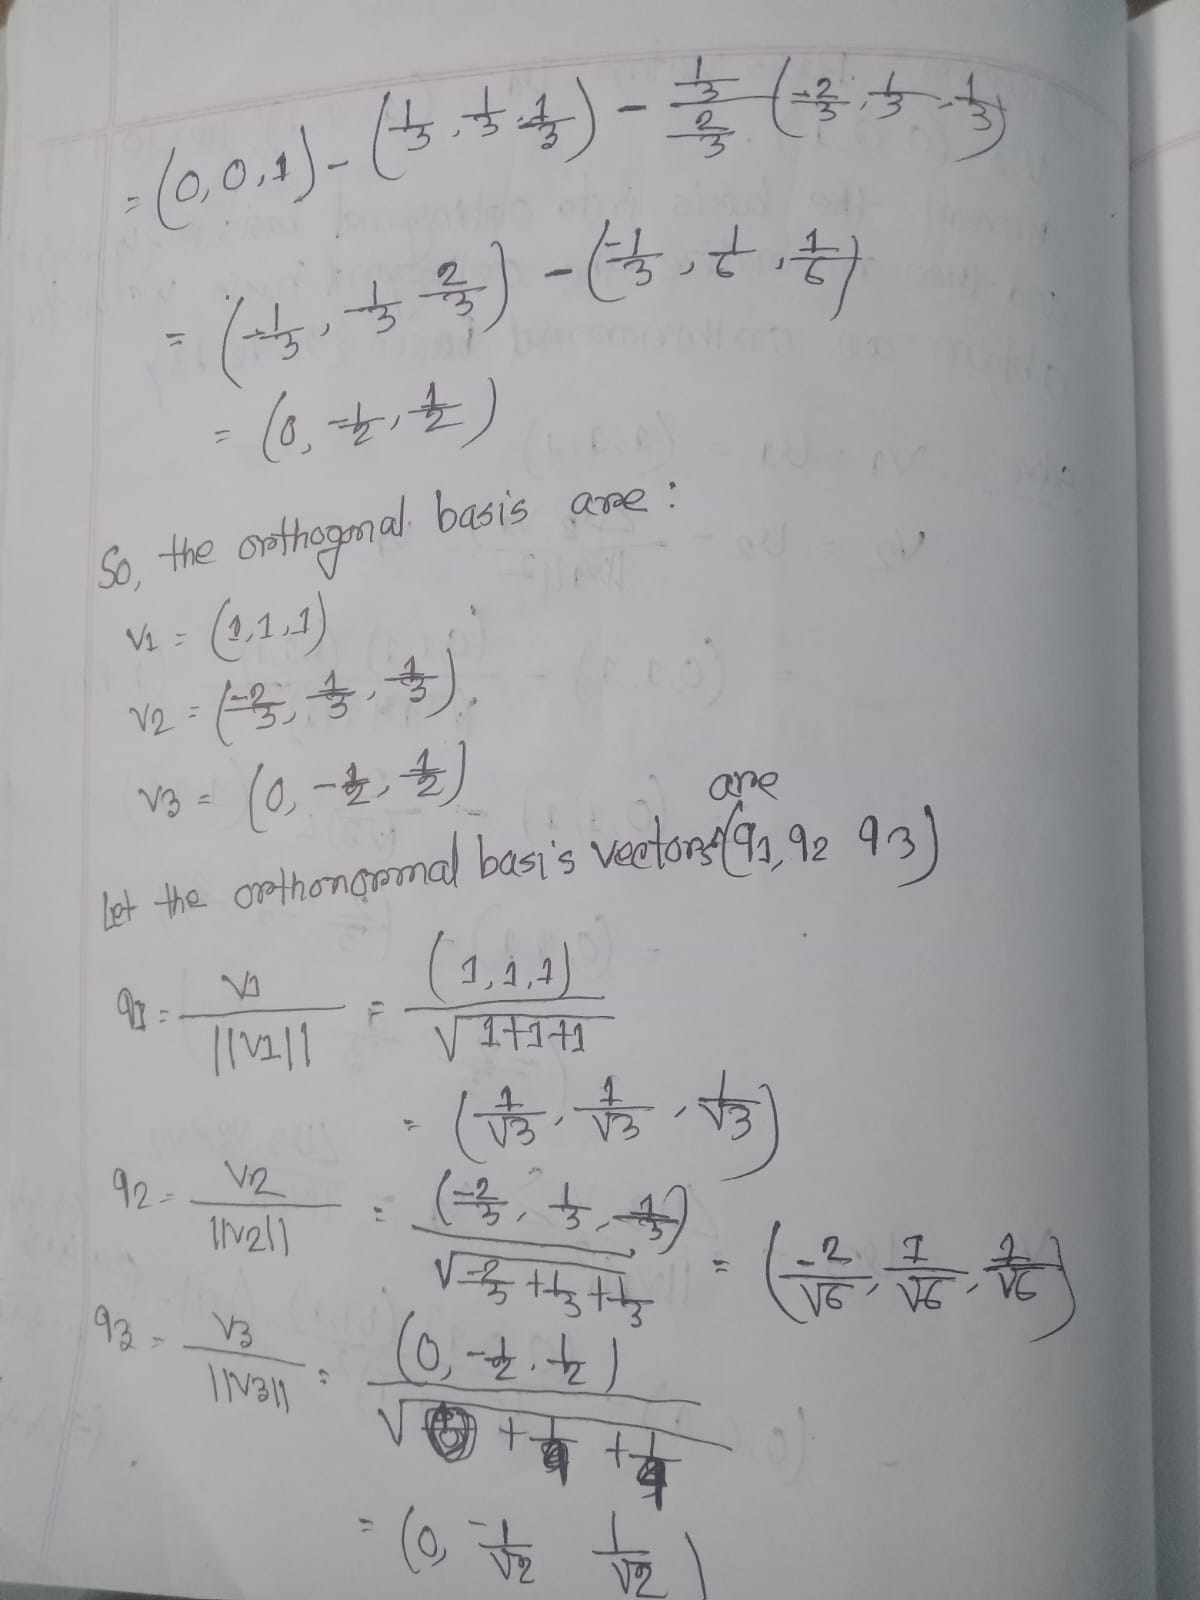 = (0,0,1) - (1/3, 1/3, 1/3) - (1/3)/(2/3) (-2/3, 1/3, 1/3)
= (-1/3, -1/3, 2/3) - (-1/3, 1/6, 1/6)
= (0, -1/2, 1/2)
So, the orthogonal basis are :
v1 = (1,1,1)
v2 = (-2/3, 1/3, 1/3).
v3 = (0, -1/2, 1/2)
Let the orthonormal basis vectors are (q1, q2 q3)
q1 = v1/||v1|| = (1,1,1)/√(1+1+1)
= (1/√3, 1/√3, 1/√3)
q2 = v2/||v2|| = (-2/3, 1/3, 1/3)/√(-2/3 + 1/3 + 1/3) = (-2/√6, 1/√6, 1/√6)
q3 = v3/||v3|| = (0, -1/2, 1/2)/√(0 + 1/4 + 1/4)
= (0, -1/√2 1/√2)